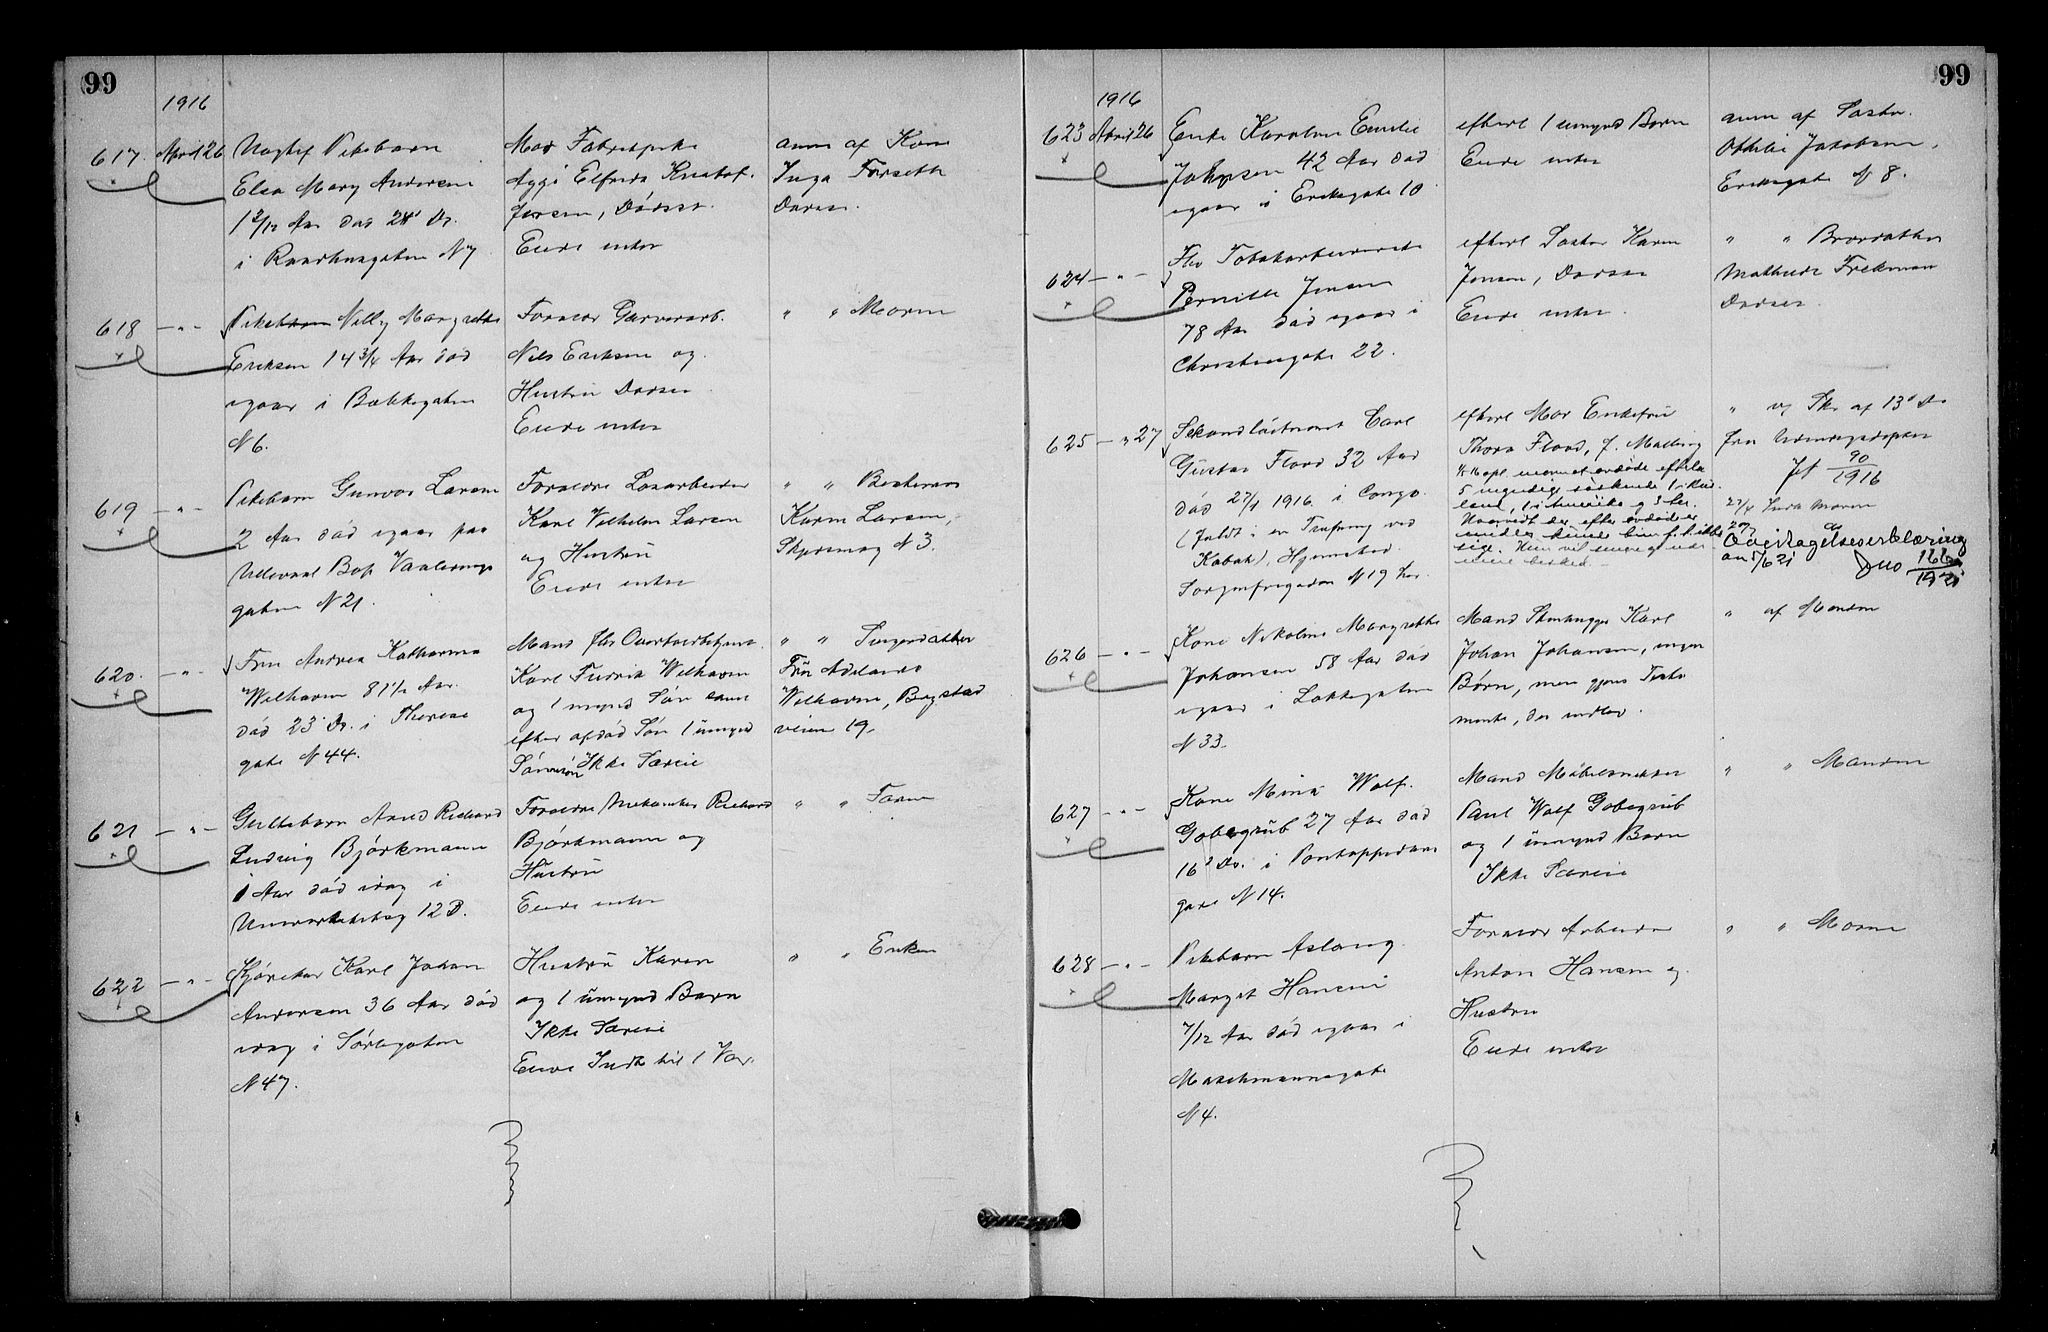 99
1916
617. April 26 Uægte Pikebarn
Elsa Mary Andersen
1 2/12 Aar død 24' Ds.
i Raadhusgaten N 7
Mor Fabrikpike
Aggi Elfrida Kristof-
fersen, Dødsst.
Eiede intet
anm af Kone
Inga Forseth
Dødsst.
618 — " — Pikebarn Nelly Margrethe
Eriksen 14 3/4 Aar død
igaar i Bakkegaten
N 6.
Forældre Garverarb.
Nils Eriksen og
Hustru Dødsst.
Eiede intet
" " Moren
619 — " — Pikebarn Gunvor Larsen
2 Aar død igaar paa
Ullevaal Bop Vaalerenga
gaten N 21.
Forældre Løsarbeider
Karl Vilhelm Larsen
og Hustru
Eiede intet
" " Bestemor
Karen Larsen,
N 3.
620. — " — Fru Andrea Katharina
Welhaven 81 1/2 Aar
død 23' Ds. i Therese
gate N 44.
Mand fhv Overtoldbetjent
Karl Fredrik Welhaven
og 1 myndig Søn samt
efter afdød Søn 1 umynd
Sønnesøn Ikke Særeie
" " Svigerdatter
Fru
Welhaven, Bogstad
veien 19.
621 — " — Guttebarn Arne Richard
Ludvig Bjørkmann
1 Aar død idag i
12 B.
Forældre Mekaniker Richard
Bjørkmann og
Hustru
Eiede intet
" " Faren
622 — " — Kjørekar Karl Johan
Andersen 36 Aar død
idag i Sørligaten
N 47.
Hustru Karen
og 1 umynd Barn
Ikke Særeie
Eiede Indbo til 1 Vær.
" " Enken
99
1916
623 April 26 Enke Karoline Emilie
42 Aar død
igaar i Eriksgate 10
efterl 1 umynd Barn
Eiede intet
anm af Søster
Othilie Jakobsen,
Eriksgate N 8.
624 — " — Fhv Tobakarbeiderske
Pernille Jensen
78 Aar død igaar i
Christiesgate 22.
efterl Søster Karen
Jensen, Dødsst
Eiede intet.
" " Brordatter
Mathilde Frekman
Dødsst.
625 — " 27 Sekondløitnant Carl
Gustav Flood 32 Aar
død 27/1 1916 i Congo.
(faldt i en Træfning ved
Kabati), Hjemsted.
Sorgenfrigaden N 19 her.
efterl Mor Enkefru
Thora Flood, f. Malling
5 myndige søskende
" v Skr af 13' Ds
fra
Jt 90/1916
27/4 Moren
Overtagelseserklæring
an 1/6 21 Jno 166/1921
626 — " — Kone Nikoline Margrethe
Johansen 58 Aar død
igaar i Løkkegaten
N 33.
Mand Stenhugger Karl
Johan Johansen, ingen
Børn, men gjens Testa
mente, der indlev.
" af Manden
627 — " — Kone Mina Wolf
27 Aar død
16' Ds. i Pontoppidans
gate N 14.
Mand Møbelsnekker
Paul Wolf
og 1 umynd Barn
Ikke Særeie
" " Manden
628 — " — Pikebarn Aslaug
Margit Hansen
7/12 Aar død igaar i
Maschmannsgate
N 4.
Forældre Arbeider
Anton Hansen og
Hustru
Eiede intet
" " Moren